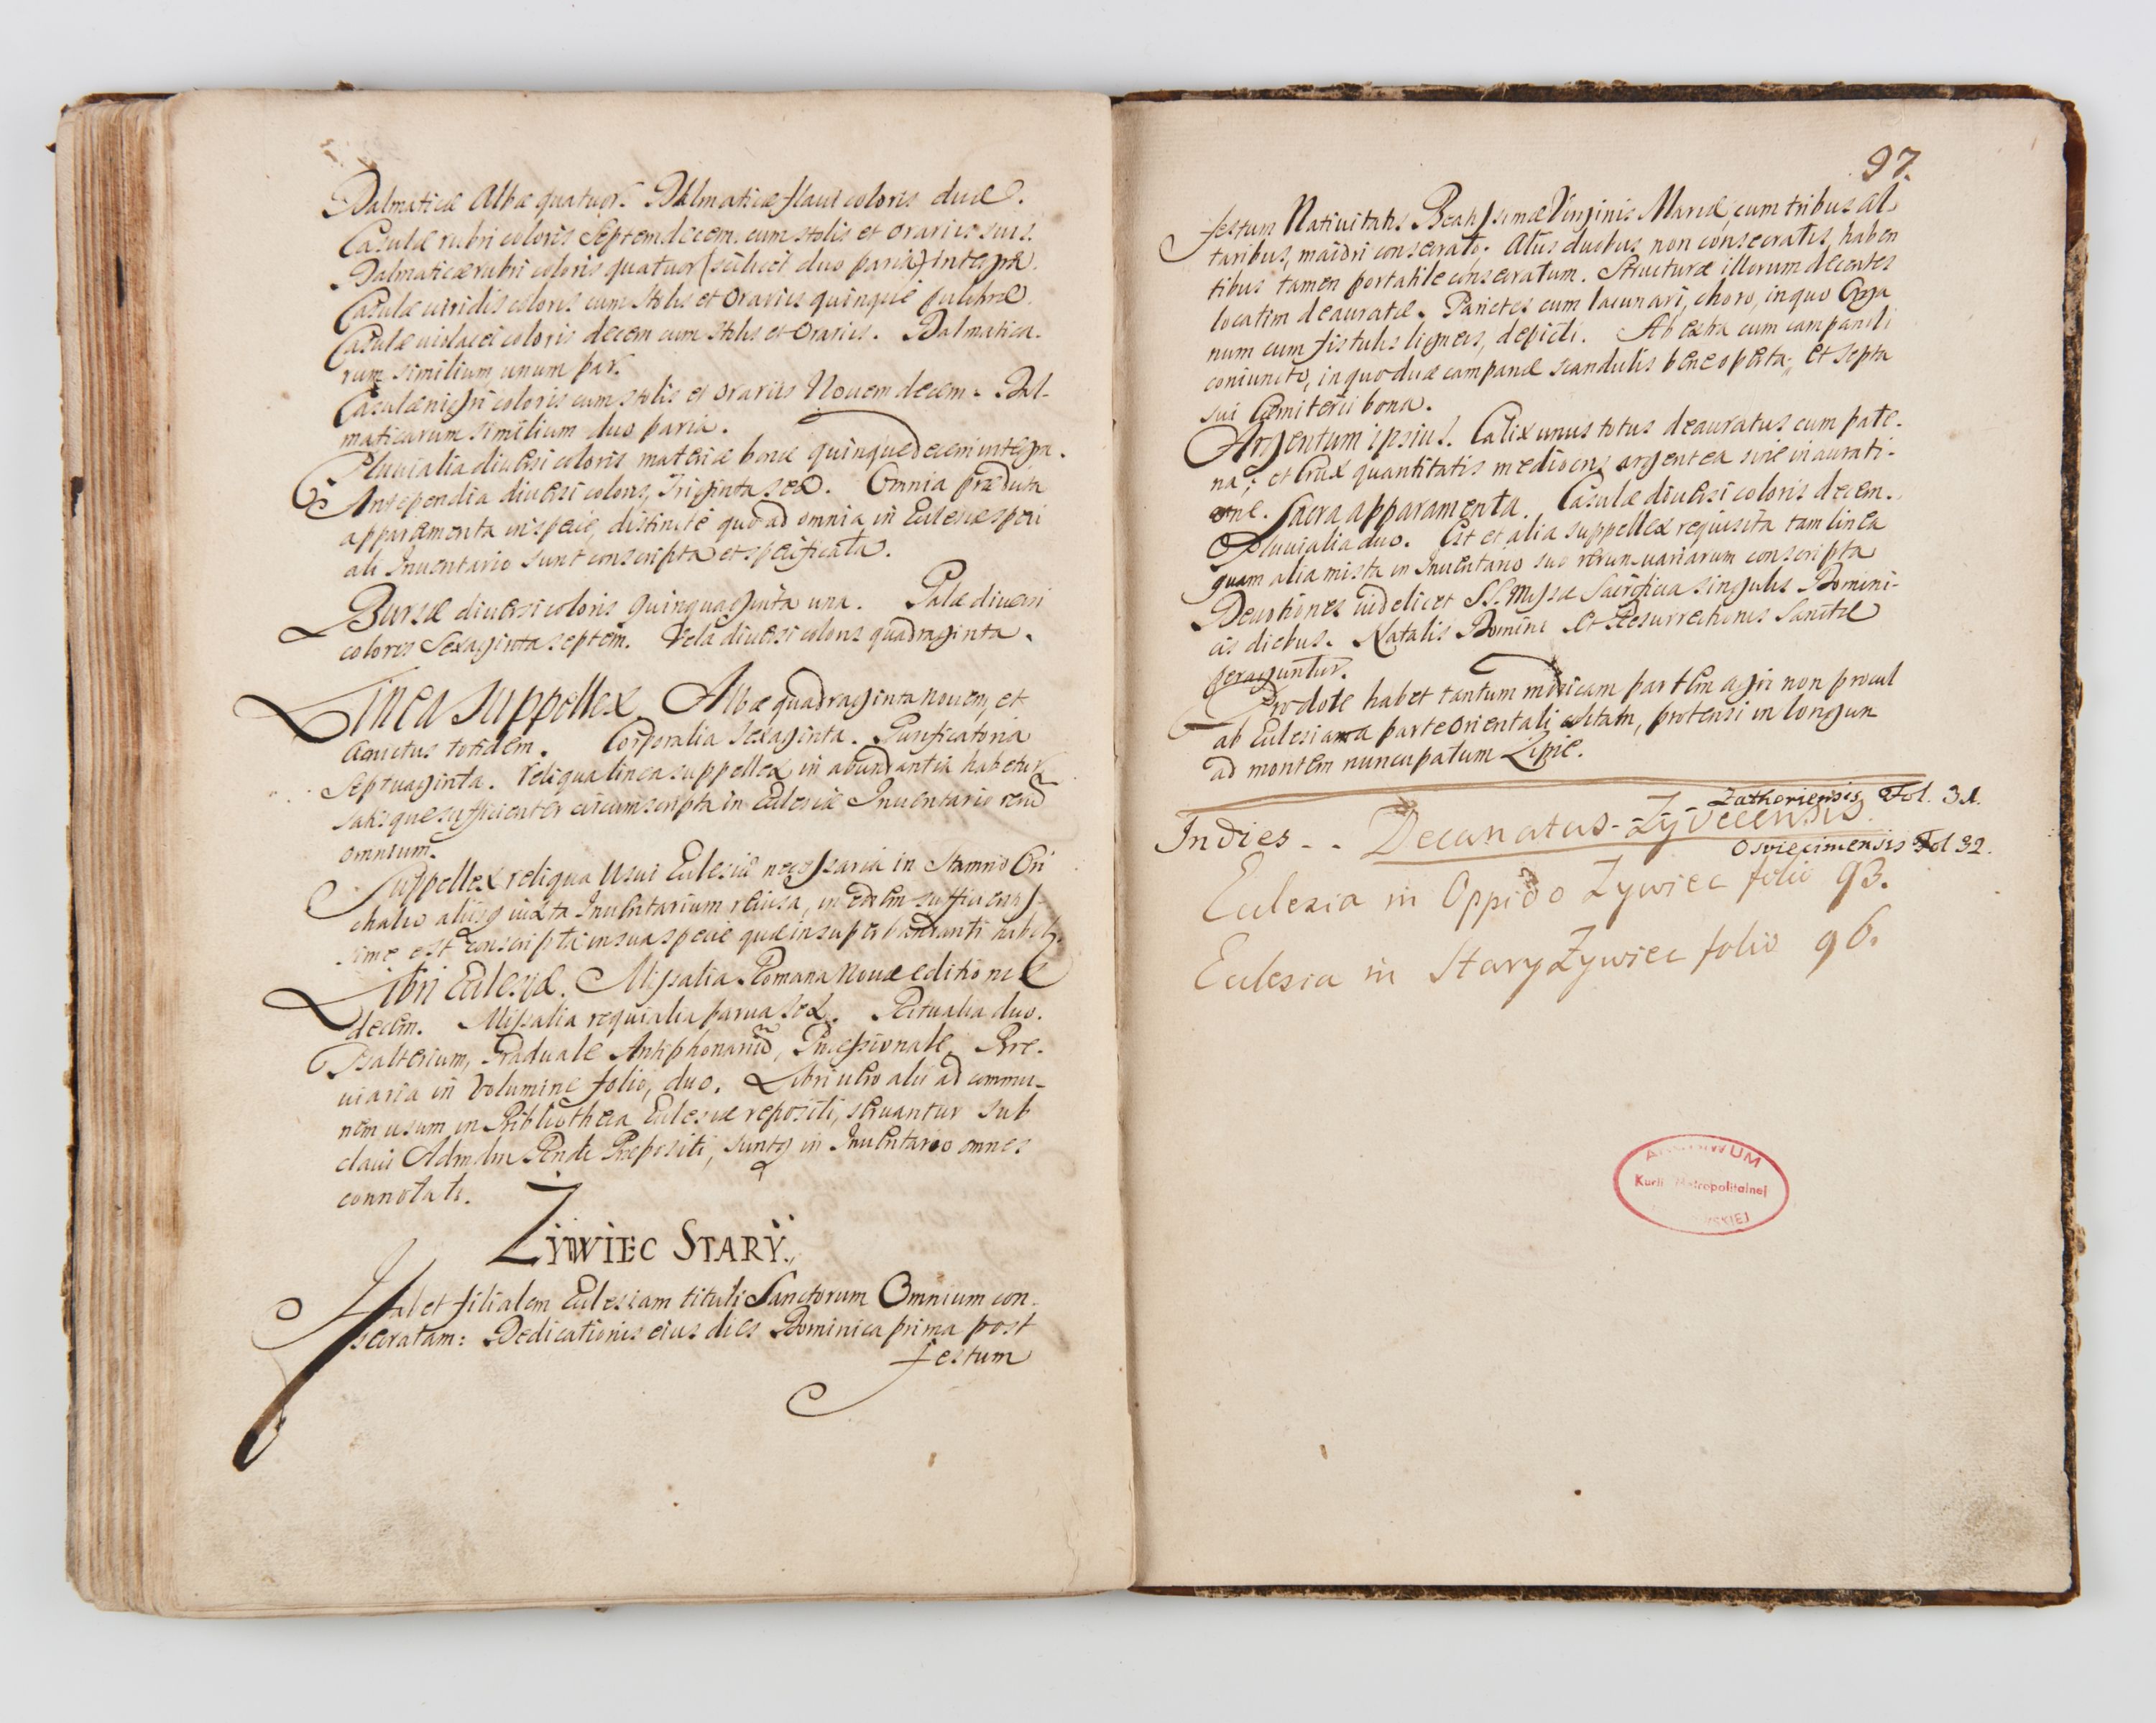 Dalmaticæ Albæ quatuor. Dalmaticæ flaui coloris duæ.
Casulæ rubri coloris Septemdecem cum stolis et orariis suis.
Dalmaticæ rubri coloris quatuor (scilicet duo paria) integra.
Casulæ uiridis coloris cum stolis et orariis quinque pulchræ.
Casulæ uiolacei coloris decem cum stolis et Orariis. Dalmatica-
rum similium unum par.
Casulæ nigri coloris cum stolis et orariis Nouemdecem. Dal-
maticarum similium duo paria.
Pluuialia diuersi coloris materiæ bonæ quinquedecem integra.
Antependia diuersi coloris, Triginta sex. Omnia prædicta
apparamenta in specie, distincte quo ad omnia in Eclesiæ speci
ali Inuentario sunt conscripta et specificata.
Bursæ diuersi coloris quinquaginta una. Palæ diuersi
coloris Sexaginta septem. Vela diuersi coloris quadraginta.
Linea Suppellex Albæ quadraginta nouem, et
Amictus totidem. Corporalia Sexaginta. Purificatoria
Septuaginta. Reliqua linea suppellex in abundantia habetur
satisque sufficienter circumscripta in Eclesiæ Inuentario rerū
omnium.
Suppellex reliqua Usui Eclesiæ necessaria in Stamno Ori
chalco aliisq iuxta Inuentarium reuisa, in eodem sufficientis-
sime est conscripta in sua specie quæ in superabundanti habet.
Libri Eclesiæ. Missalia Romana Nouæ editionis
decem. Missalia requialia parua sex. Ritualia duo.
Psalterium, Graduale Antiphonariū, Processionale, Bre-
uiaria in Volumine folio, duo. Libri uero alii ad commu-
nem usum in Bibliotheca Eclesiæ repositi, seruantur sub
claui Adm dm Rendi Præpositi, suntq in Inuentario omnes
connotati.
ZYWIEC STARY.
Habet filialem Eclesiam tituli Sanctorum Omnium con-
secratam: Dedicationis eius dies Dominica prima post
festum
97.
festum Natiuitatis Beatissimæ Virginis Mariæ, cum tribus al-
taribus, maiori consecrato. Aliis duobus non consecratis, haben
tibus tamen portatile consecratum. Structuræ illorum decentes
locatim deauratæ. Parietes cum lacunari, choro, in quo Orga
num cum fistulis ligneis, depicti. Ab extra cum campanili
coniuncto, in quo duæ campanæ scandulis bene operta, et septa
sui Cæmiterii bona.
Argentum ipsius. Calix unus totus deauratus cum pate-
na; et Crux quantitatis mediocris argentea sine inaurati-
one. Sacra apparamenta. Casulæ diuersi coloris decem.
Pluuialia duo. Est et alia suppellex requisita tam linea
quam alia mista in Inuentario suo rerum uariarum conscripta
Deuotiones uidelicet SS. Missæ Sacrificia singulis Domini-
cis diebus. Natalis Domini et Resurrectionis Sanctæ
peraguntur.
Pro dote habet tantum modicam partem agri non procul
ab Eclesia a parte Orientali sitam, protensi in longum
ad montem nuncupatum Lipie.
Zathoriensis Fol. 31.
Indies - - Decanatus - Zyvecensis.
Osviecimensis Fol 32.
Eclesia in Oppido Zywiec folio 93.
Eclesia in Stary Zywiec folio 96.
ARCHIWUM
Kurii Metropolitalnej